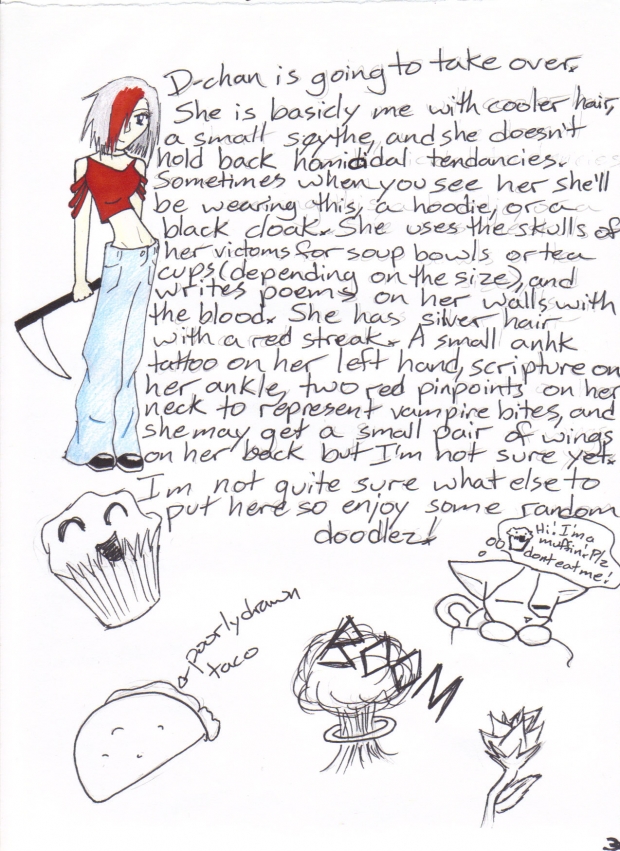 D-chan is going to take over.
She is basicly me with cooler hair,
a small scythe, and she doesn't
hold back homicidal tendancies.
Sometimes when you see her she'll
be wearing this, a hoodie, or a
black cloak. She uses the skulls of
her victoms for soup bowls or tea
cups (depending on the size), and
writes poems on her walls with
the blood. She has silver hair
with a red streak. A small anhk
tattoo on her left hand, scripture on
her ankle, two red pinpoints on her
neck to represent vampire bites, and
she may get a small pair of wings
on her back but I'm not sure yet.
I'm not quite sure what else to
put here so enjoy some random
doodlez!
Hi! I'm a
muffin! Plz
dont eat me!
poorly drawn
taco
BOOM
3